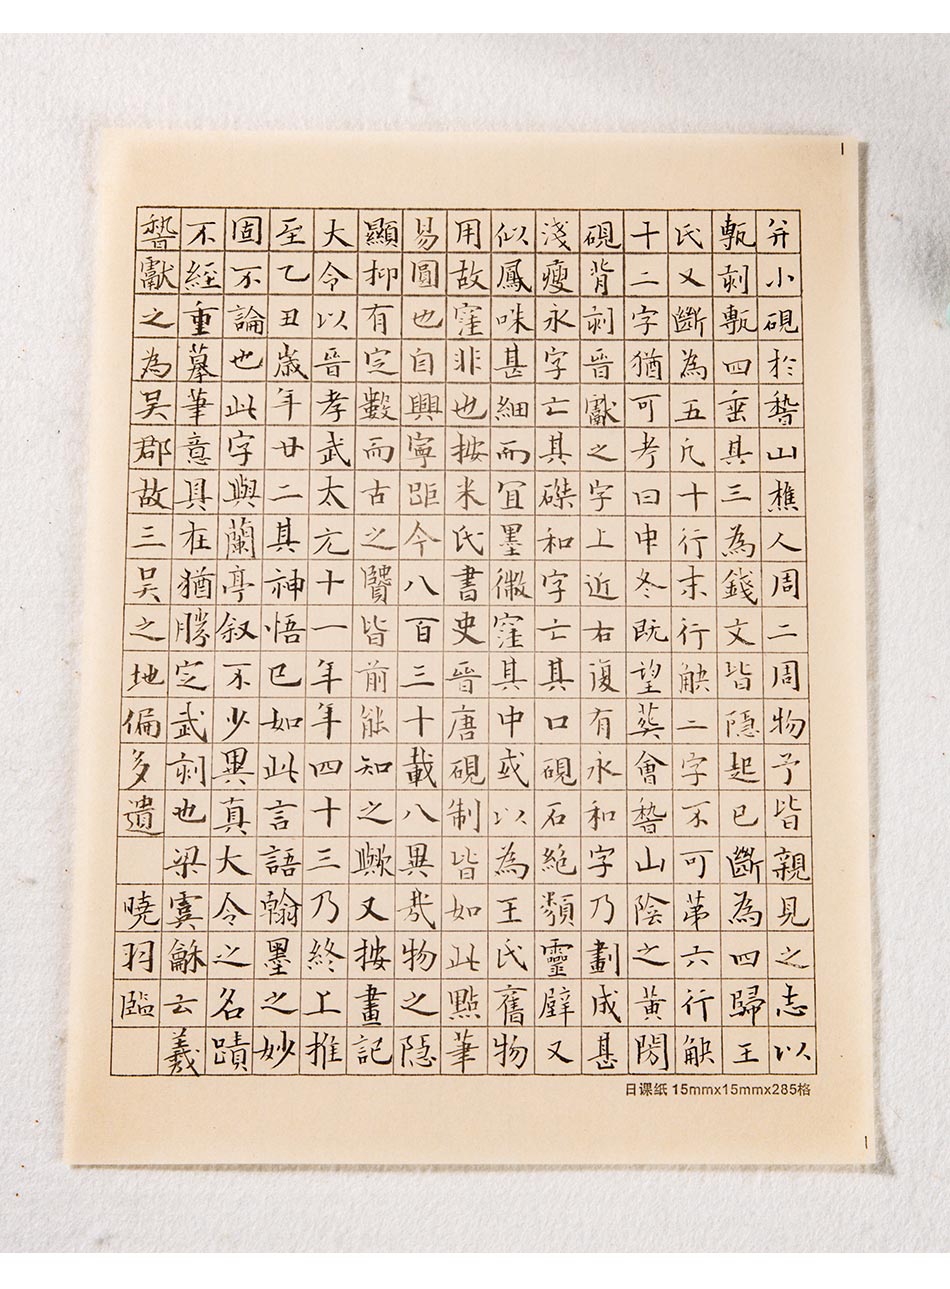 并小硯於稽山樵人周二周物予皆親見之志以
甎刻甎四垂其三為錢文皆隱起已斷為四歸王
氏又斷為五凡十行末行缺二字不可第六行缺
十二字猶可考曰中冬既望葬會稽山陰之黃閍
硯背刻晉獻之字上近右復有永和字乃劃成甚
淺瘦永字亡其磔和字亡其口硯石絕類靈壁又
似鳳咮甚細而宜墨微窪其中或以為王氏舊物
用故窪非也按米氏書史晉唐硯制皆如此點筆
易圓也自興寧距今八百三十載八異哉物之隱
顯抑有定數而古之贒皆前能知之歟又按畫記
大令以晉孝武太元十一年年四十三乃終上推
至乙丑歲年廿二其神悟已如此言語翰墨之妙
固不論也此字與蘭亭叙不少異真大令之名蹟
不經重摹筆意具在猶勝定武刻也梁虞龢云羲
稽獻之為吳郡故三吳之地偏多遺
曉羽臨
日课纸 15mmx15mmx285格